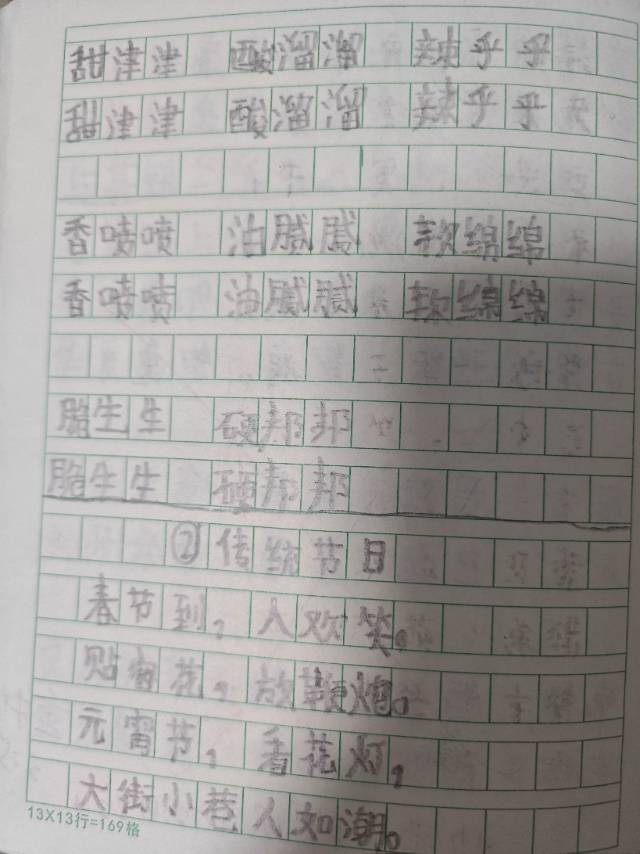 甜津津 酸溜溜 辣乎乎
甜津津 酸溜溜 辣乎乎
香喷喷 油腻腻 软绵绵
香喷喷 油腻腻 软绵绵
脆生生 硬邦邦
脆生生 硬邦邦
②传统节日
春节到，人欢笑。
贴窗花，放鞭炮。
元宵节，看花灯，
大街小巷人如潮。
13X13行=169格